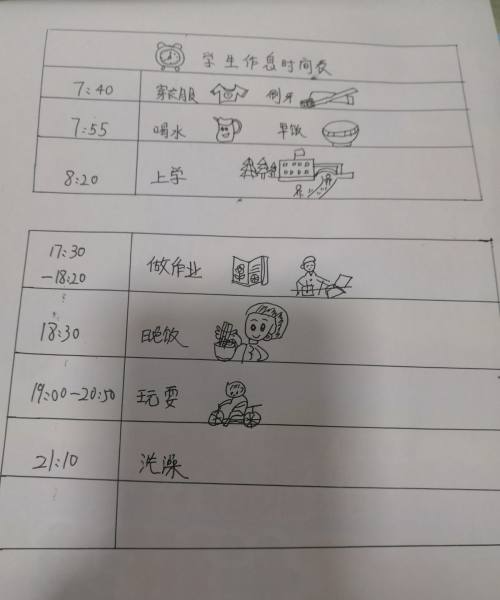 学生作息时间表
7:40 穿衣服 刷牙
7:55 喝水 早饭
8:20 上学
17:30
-18:20 做作业
18:30 晚饭
19:00-20:50 玩耍
21:10 洗澡